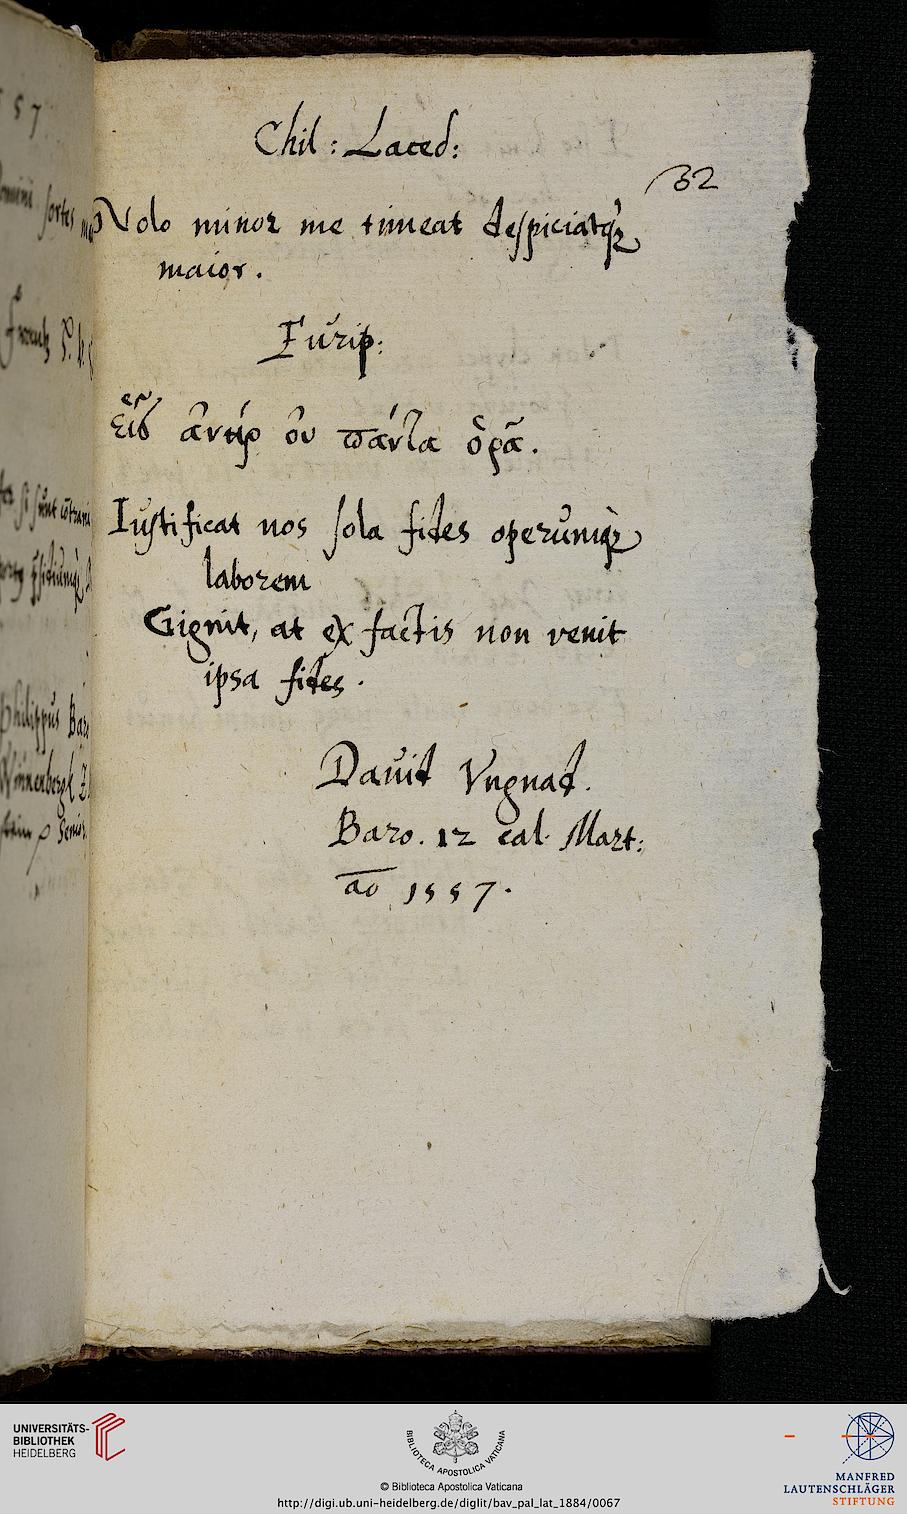 Chil: Laced:
32
Nolo minor me timeat despiciatq;
maior.
Eurip:
εἷς ἀνὴρ οὐ πάντα ὁρᾷ.
Iustificat nos sola fides operumq;
laborem
Gignit, at ex factis non venit
ipsa fides.
Dauid Vngnad.
Baro. 12 cal. Mart:
ao 1557.
57
sortes
Philippus Bar
Winnenbergk
Senior
UNIVERSITÄTS-
BIBLIOTHEK
HEIDELBERG
BIBLIOTECA APOSTOLICA VATICANA
© Biblioteca Apostolica Vaticana
http://digi.ub.uni-heidelberg.de/diglit/bav_pal_lat_1884/0067
MANFRED
LAUTENSCHLÄGER
STIFTUNG